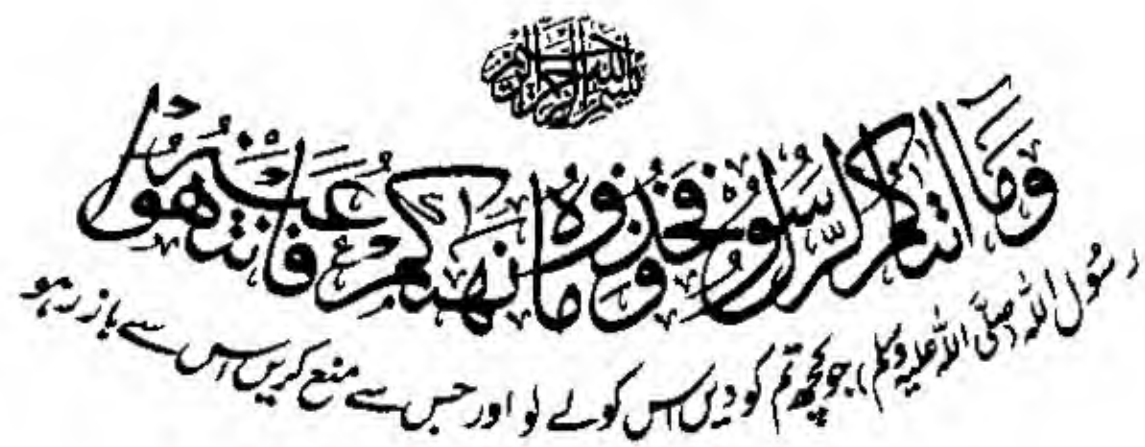 بسم الله الرحمن الرحيم
وَمَا اٰتٰىكُمُ الرَّسُوْلُ فَخُذُوْهُ وَمَا نَهٰىكُمْ عَنْهُ فَانْتَهُوْا
رسُول اللہ (صلَّی اللہ علیہ وسلم) جو کچھ تم کو دیں اس کو لے لو اور جس سے منع کریں اس سے باز رہو